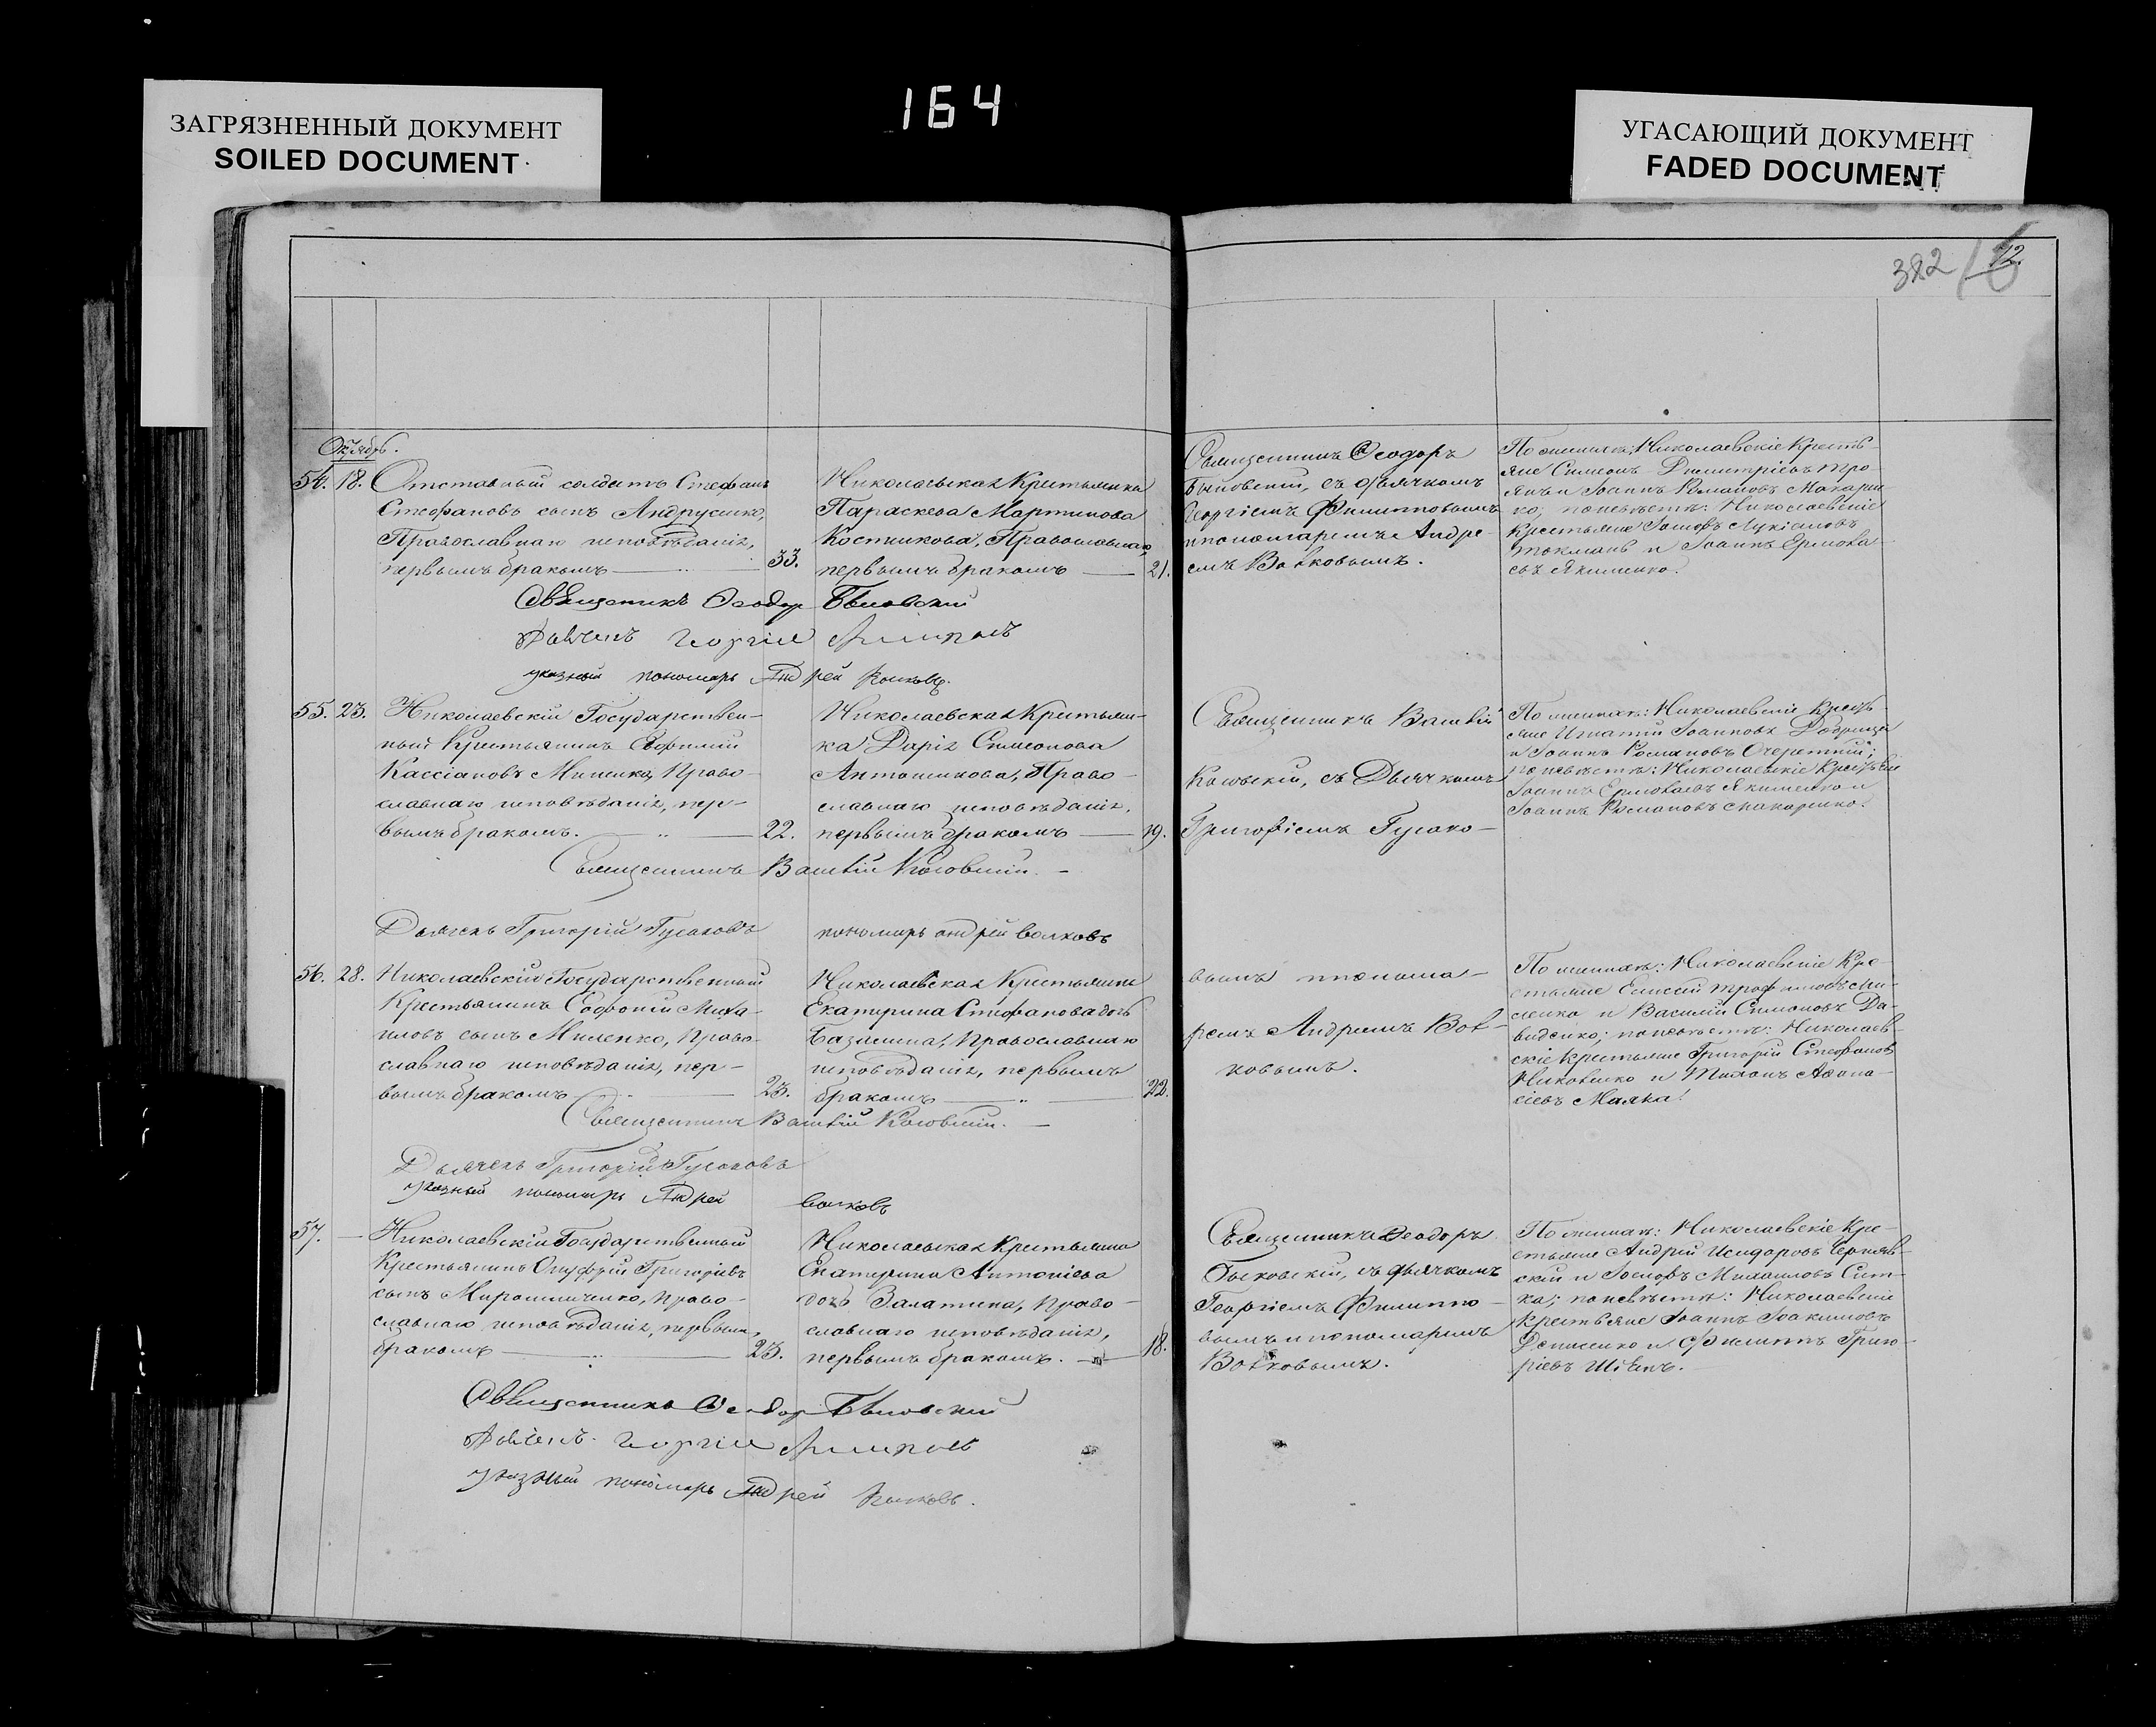 164
ЗАГРЯЗНЕННЫЙ ДОКУМЕНТ
SOILED DOCUMENT
УГАСАЮЩИЙ ДОКУМЕНТ
FADED DOCUMENT
382
72.
Октябрь.
54. 18. Отставный солдатъ Стефанъ
Стефановъ сынъ Андрусенко,
Православнаго исповѣданія,
первымъ бракомъ 33.
Николаевская Крестьянка
Параскева Мартинова
Костикова, Православнаго
первымъ бракомъ 21.
Священникъ Ѳеодоръ
Быковскій, съ дьячкомъ
Георгіемъ Филипповымъ
и пономаремъ Андре-
емъ Волковымъ.
По женихѣ: Николаевскіе Кресть-
яне Симеонъ Димитріевъ Тро-
янъ и Іоаннъ Романовъ Макарен
ко; по невѣстѣ: Николаевскіе
Крестьяне Іосифъ Лукіановъ
Токмань и Іоаннъ Ермола-
евъ Якименко.
Священникъ Ѳеодоръ Быковскій
Дьячекъ Георгій Филиповъ
указный пономарь Андрей Волковъ.
55. 23. Николаевскій Государствен-
ный Крестьянинъ Евфимій
Кассіановъ Миненко, Право-
славнаго исповѣданія, пер-
вымъ бракомъ. 22.
Николаевская Крестьян-
ка Дарія Симеонова
Антошикова, Право-
славнаго исповѣданія,
первымъ бракомъ 19.
Священникъ Василій
Косовскій, съ Дьячкомъ
Григоріемъ Гусако-
По женихѣ: Николаевскіе Кресть-
яне Игнатій Іоанновъ Добрица
и Іоаннъ Романовъ Очеретній;
по невѣстѣ: Николаевскіе Крестьяне
Іоаннъ Ермолаевъ Якименко и
Іоаннъ Романовъ Макаренко.
Священникъ Василій Косовскій.
Дьячекъ Григорій Гусаковъ
пономарь андрей волковъ
56. 28. Николаевскій Государственный
Крестьянинъ Софоній Миха-
иловъ сынъ Миленко, Право-
славнаго исповѣданія, пер-
вымъ бракомъ 23.
Николаевская Крестьянка
Екатерина Стефанова дочь
Православнаго
исповѣданія, первымъ
бракомъ 22.
вымъ и понома-
ремъ Андреемъ Вол-
ковымъ.
По женихѣ: Николаевскіе Кре-
стьяне Елисей Трофимовъ Ми-
ленко и Василій Симоновъ Да-
виденко; по невѣстѣ: Николаев-
скіе Крестьяне Григорій Стефановъ
и Аѳана-
сіевъ Маяка.
Священникъ Василій Косовскій.
Дьячекъ Григорій Гусаковъ
указный пономарь Андрей волковъ
57. Николаевскій Государственный
Крестьянинъ Онуфрій Григоріевъ
сынъ Мирошниченко, Право-
славнаго исповѣданія, первымъ
бракомъ 23.
Николаевская Крестьянка
Екатерина Антоніева
дочь Залатина, Право-
славнаго исповѣданія,
первымъ бракомъ. 18.
Священникъ Ѳеодоръ
Быковскій, съ дьячкомъ
Георгіемъ Филиппо-
вымъ и пономаремъ
Волковымъ.
По женихѣ: Николаевскіе Кре-
стьяне Андрей Исидоровъ Черняв-
скій и Іосифъ Михаиловъ Сит-
ка; по невѣстѣ: Николаевскіе
Крестьяне Іоаннъ Іоакимовъ
Денисенко и Филиппъ Григо-
ріевъ Швецъ.
Священникъ Ѳеодоръ Быковскій
Дьячекъ Георгій Филиповъ
указный пономарь Андрей Волковъ.